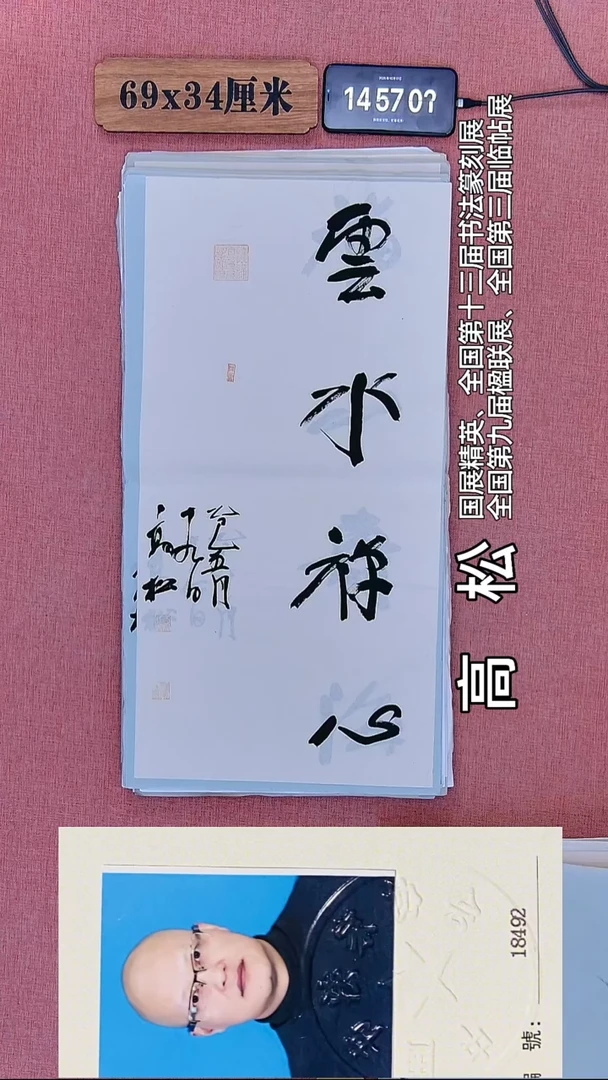 69x34厘米
14 57 07
雲水禅心
乙巳五月
十九日
高松
国展精英、全国第十三届书法篆刻展
全国第九届楹联展、全国第三届临帖展
高 松
號: 18492